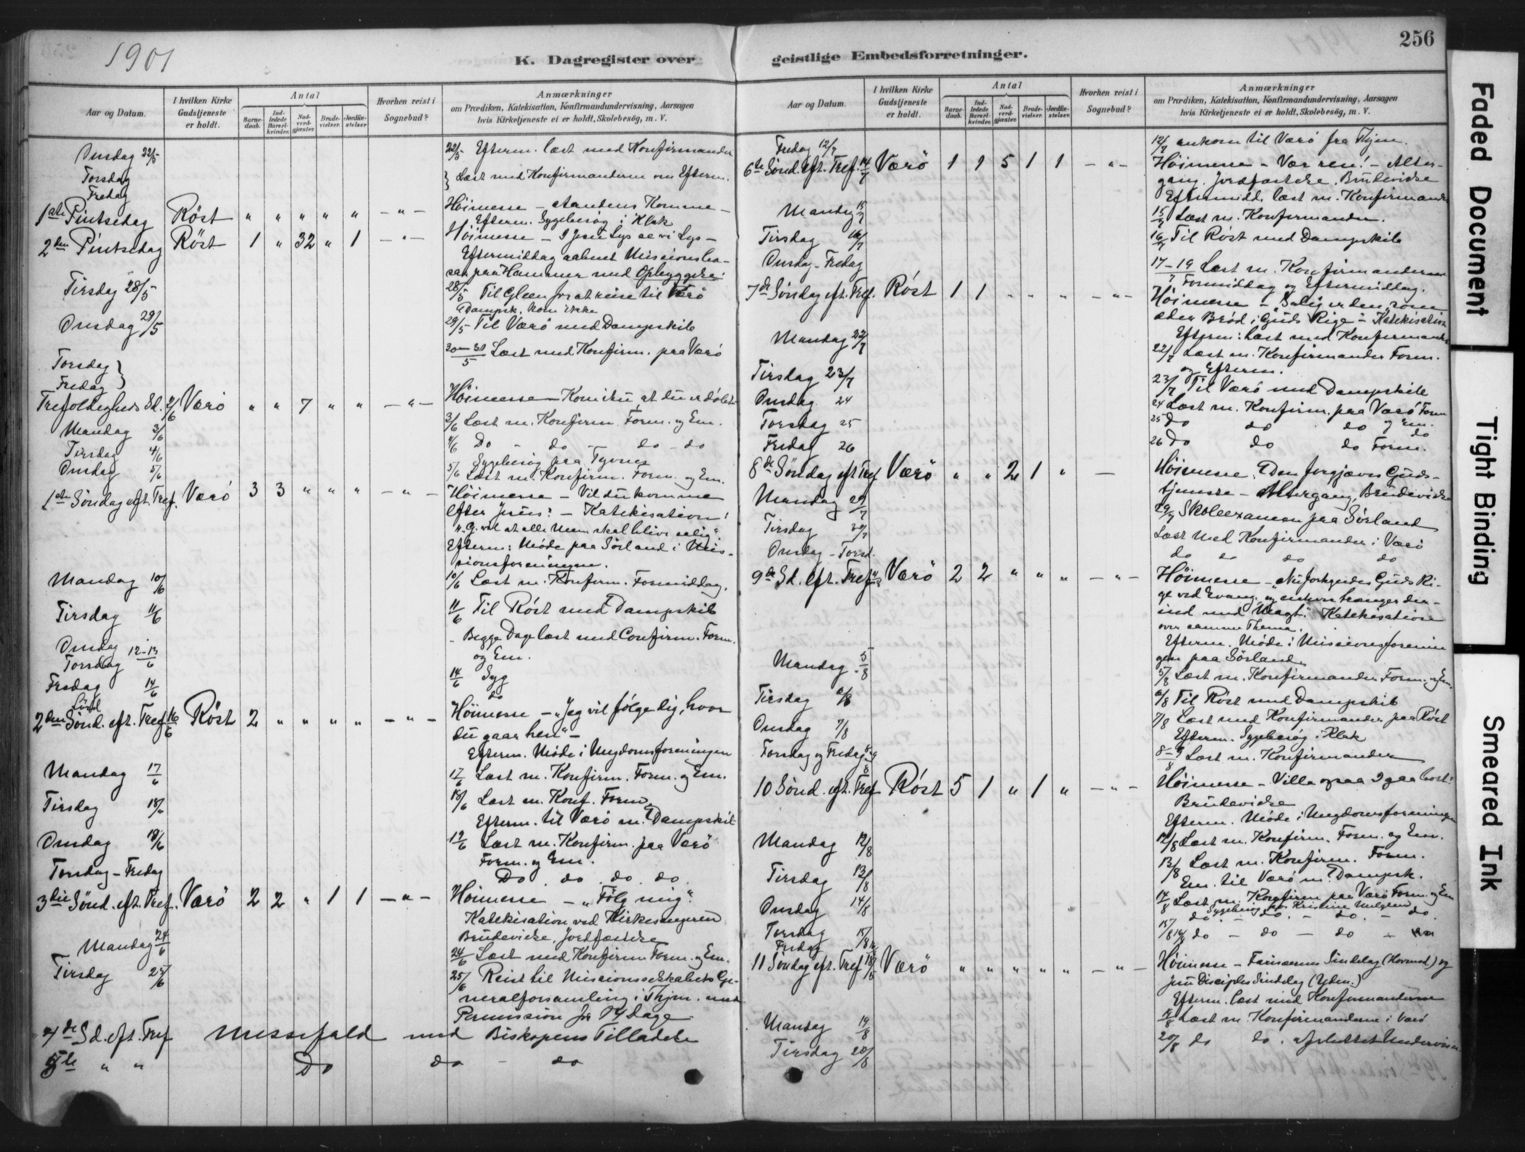 1901
K. Dagregister over
Aar og Datum.
I hvilken Kirke Gudstjeneste er holdt.
Antal
Barnedaab.
Indledede Barselkvinder.
Nadverdgjæster
Brudevielser.
Jordfæstelser
Hvorhen reist i Sognebud?
Anmærkninger
om Prædiken, Katekisation, Konfirmandundervisning, Aarsagen
hvis Kirketjeneste ei er holdt, Skolebesøg, m. V.
Onsdag 22/5
22/5 Efterm. læst med Konfirmander
Torsdag
Fredag
} Læst med Konfirmanderne om Efterm.
1ste Pintsedag Røst " " " " " – " – Høimesse – Aandens Komme –
Efterm. Sygebesøg i Klak
2den Pintsedag Røst 1 " 32 " 1 – " – Høimesse – I Jesu Lys se vi Lys –
Eftermiddag aabnet
med Opbyggelse
Tirsdag 28/5
28/5 Til Gleen for at reise til Værø
Dampsk. kom ikke
Onsdag 29/5
29/5 Til Værø med Dampskib
Torsdag }
Fredag }
30–31/5 Læst med Konfirm. paa Værø
Trefoldigheds Sd. 2/6 Værø " " 7 " " – " – Høimesse –
Mandag 3/6
3/6 Læst m. Konfirm. Form. og Em.
Tirsdag 4/6
4/6 Do – do do – do
Sygebesøg paa Tyvnes
Onsdag 5/6
5/6 Læst m. Konfirm. Form. og Em.
1ste Søndag eft. Tref. Værø 3 3 " " " – " – Høimesse – Vil du komme
efter Jesus? – Katekisation:
Efterm: Møde paa Sørland i Mis-
sionsforeningen.
Mandag 10/6
10/6 Læst m. Konfirm. Formiddag.
Tirsdag 11/6
11/6 Til Røst med Dampskib
Onsdag
Torsdag 12–13/6
Begge Dage læst med Confirm. Form.
og Em.
Fredag 14/6
14/6 Syg
do
2den Sønd. eft. Tref 16/6 Røst 2 " " " " – " – Høimesse – "Jeg vil følge dig, hvor
du gaar hen" –
Efterm. Møde i Ungdomsforeningen
Mandag 17/6
17/6 Læst m. Konfirm. Form. og Em.
Tirsdag 18/6
18/6 Læst m. Konf. Form.
Efterm. til Værø m. Dampskib
Onsdag 19/6
Læst m. Konfirm. paa Værø
Form. og Em.
Torsdag – Fredag
Do. do. do. do.
3die Sønd. eft. Tref. Værø 2 2 " 1 1 – " – Høimesse – "Følg mig"
Katekisation ved Kirkesangeren
Brudevielse. Jordfæstelse
Mandag 24/6
24/6 Læst med Konfirm Form. og Em.
Tirsdag 25/6
25/6 Reist til Missionsselskabets Ge-
neralforsamling i Thjem. med
Permission for 14 dage
4de Sd. eft. Tref Messefald med Biskopens Tilladelse
5te " " Do do – do
256
geistlige Embedsforretninger.
Aar og Datum.
I hvilken Kirke Gudstjeneste er holdt.
Antal
Barnedaab.
Indledede Barselkvinder.
Nadverdgjæster
Brudevielser.
Jordfæstelser
Hvorhen reist i Sognebud?
Anmærkninger
om Prædiken, Katekisation, Konfirmandundervisning, Aarsagen
hvis Kirketjeneste ei er holdt, Skolebesøg, m. V.
Fredag 12/7
12/7 ankom til Værø fra Thjem.
6te Sønd. eft. Tref. 14/7 Værø 1 1 5 1 1 – " – Høimesse – Vær ren! – Alter-
gang, Jordfæstelse. Brudevielse
Eftermidd. læst m. Konfirmander
Mandag 15/7
15/7 Læst m. Konfirmander.
Tirsdag 16/7
16/7 Til Røst med Dampskib
Onsdag – Fredag
17–19/7 Læst m. Konfirmanderne
Formiddag og Eftermiddag.
7de Søndag eft. Tref. Røst 1 1 " " " – " – Høimesse – Salig er den, som
æder Brød i Guds Rige – Katekisation
Efterm: læst med Konfirmander
Mandag 22/7
22/7 Læst m. Konfirmander Form.
og Efterm.
Tirsdag 23/7
23/7 Til Værø med Dampskib
Onsdag 24
24 Læst m. Konfirm. paa Værø Form
og Em.
Torsdag 25
25 Do do do do
Fredag 26
26 Do do do Form.
8de Søndag eft Tref Værø " " 2 1 " – Høimesse. Den forgjæves Guds-
tjeneste – Altergang, Brudevielse
Mandag 29/7
29/7 Skoleexamen paa Sørland
Tirsdag 30/7
Læst med Konfirmander i Værø
Onsdag – Torsd.
do do do do
9de Sd. eft. Tref 4/8 Værø 2 2 " " " – " – Høimesse – Nu forkyndes Guds Ri-
ge ved Evang. og enhver trænger der-
ind med Magt. Katekisation
over samme Thema.
Efterm. Møde i Missionsforenin
gen paa Sørland
Mandag 5/8
5/8 Læst m. Konfirmander Form. og Em.
Tirsdag 6/8
6/8 Til Røst med Dampskib
Onsdag 7/8
7/8 Læst med Konfirmander paa Røst
Efterm. Sygebesøg i Klak
Torsdag og Fredag 8–9/8
8–9/8 Læst m. Konfirmander
10 Sønd. eft. Tref Røst 5 1 " 1 " – " – Høimesse – Ville ogsaa I gaa bort?
Brudevielse
Efterm. Møde i Ungdomsforeningen
Mandag 12/8
12/8 Læst m. Konfirm. Form. og Em.
Tirsdag 13/8
13/8 Læst m. Konfirm. Form.
Em. til Værø m. Dampsk.
Onsdag 14/8
14/8 Læst m. Konfirm paa Værø Form og Em
Sygebesøg
Torsdag 15/8
15/8 do – do. – do. – do.
Fredag 16
16/8 do – do – do –
11 Søndag eft. Tref 18/8 Værø " " " " " – " – Høimesse – Farisæernes Sindelag (Hovmod) og
Jesu Disciples Sindelag (Ydm.)
Efterm. læst med Konfirmanderne
Mandag 19/8
19/8 Læst m. Konfirmanderne i Værø
Tirsdag 20/8
20/8 do do. afsluttet Undervisn.
Faded Document
Tight Binding
Smeared Ink